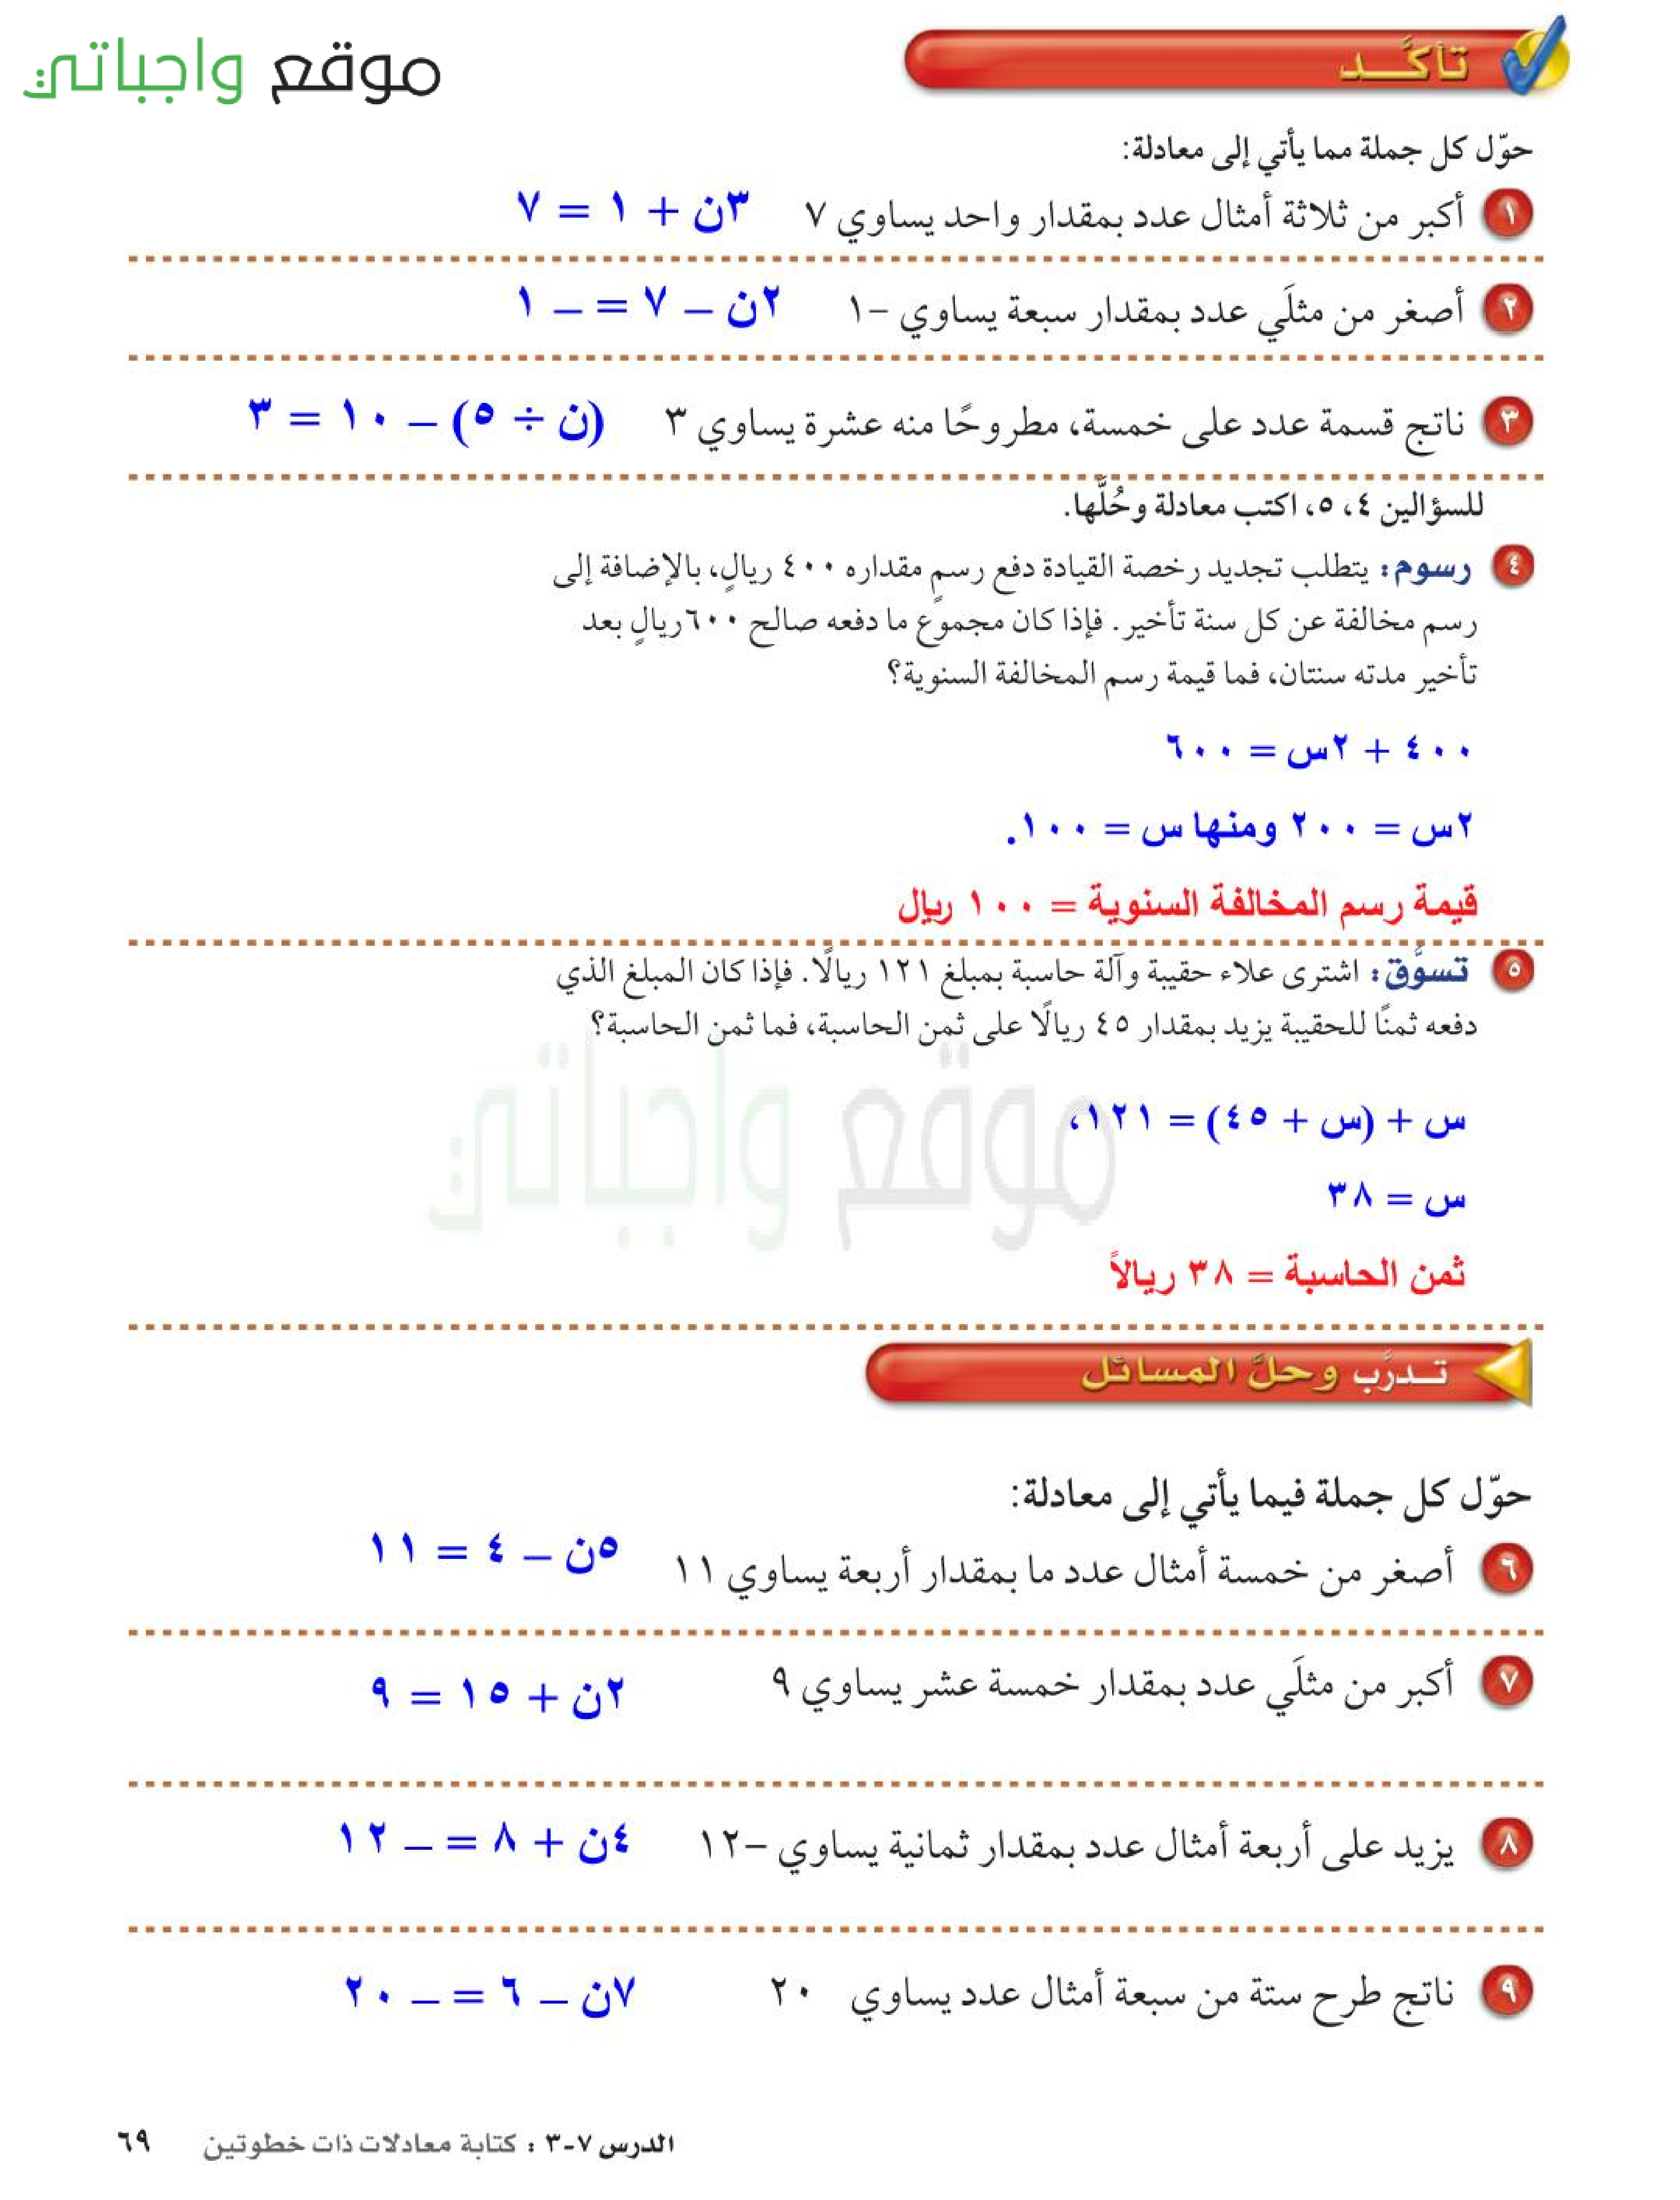 موقع واجباتي
تأكد
حوّل كل جملة مما يأتي إلى معادلة:
١ أكبر من ثلاثة أمثال عدد بمقدار واحد يساوي ٧ ٣ن + ١ = ٧
٢ أصغر من مثلَي عدد بمقدار سبعة يساوي -١ ٢ن – ٧ = – ١
٣ ناتج قسمة عدد على خمسة، مطروحًا منه عشرة يساوي ٣ (ن ÷ ٥) – ١٠ = ٣
للسؤالين ٤، ٥، اكتب معادلة وحُلَّها.
٤ رسوم: يتطلب تجديد رخصة القيادة دفع رسمٍ مقداره ٤٠٠ ريالٍ، بالإضافة إلى
رسم مخالفة عن كل سنة تأخير. فإذا كان مجموع ما دفعه صالح ٦٠٠ ريالٍ بعد
تأخير مدته سنتان، فما قيمة رسم المخالفة السنوية؟
٤٠٠ + ٢س = ٦٠٠
٢س = ٢٠٠ ومنها س = ١٠٠.
قيمة رسم المخالفة السنوية = ١٠٠ ريال
٥ تسوُّق: اشترى علاء حقيبة وآلة حاسبة بمبلغ ١٢١ ريالًا. فإذا كان المبلغ الذي
دفعه ثمنًا للحقيبة يزيد بمقدار ٤٥ ريالًا على ثمن الحاسبة، فما ثمن الحاسبة؟
موقع واجباتي
س + (س + ٤٥) = ١٢١،
س = ٣٨
ثمن الحاسبة = ٣٨ ريالاً
تدرَّب وحلَّ المسائل
حوّل كل جملة فيما يأتي إلى معادلة:
٦ أصغر من خمسة أمثال عدد ما بمقدار أربعة يساوي ١١ ٥ن – ٤ = ١١
٧ أكبر من مثلَي عدد بمقدار خمسة عشر يساوي ٩ ٢ن + ١٥ = ٩
٨ يزيد على أربعة أمثال عدد بمقدار ثمانية يساوي -١٢ ٤ن + ٨ = – ١٢
٩ ناتج طرح ستة من سبعة أمثال عدد يساوي ٢٠ ٧ن – ٦ = – ٢٠
الدرس ٧-٣ : كتابة معادلات ذات خطوتين ٦٩